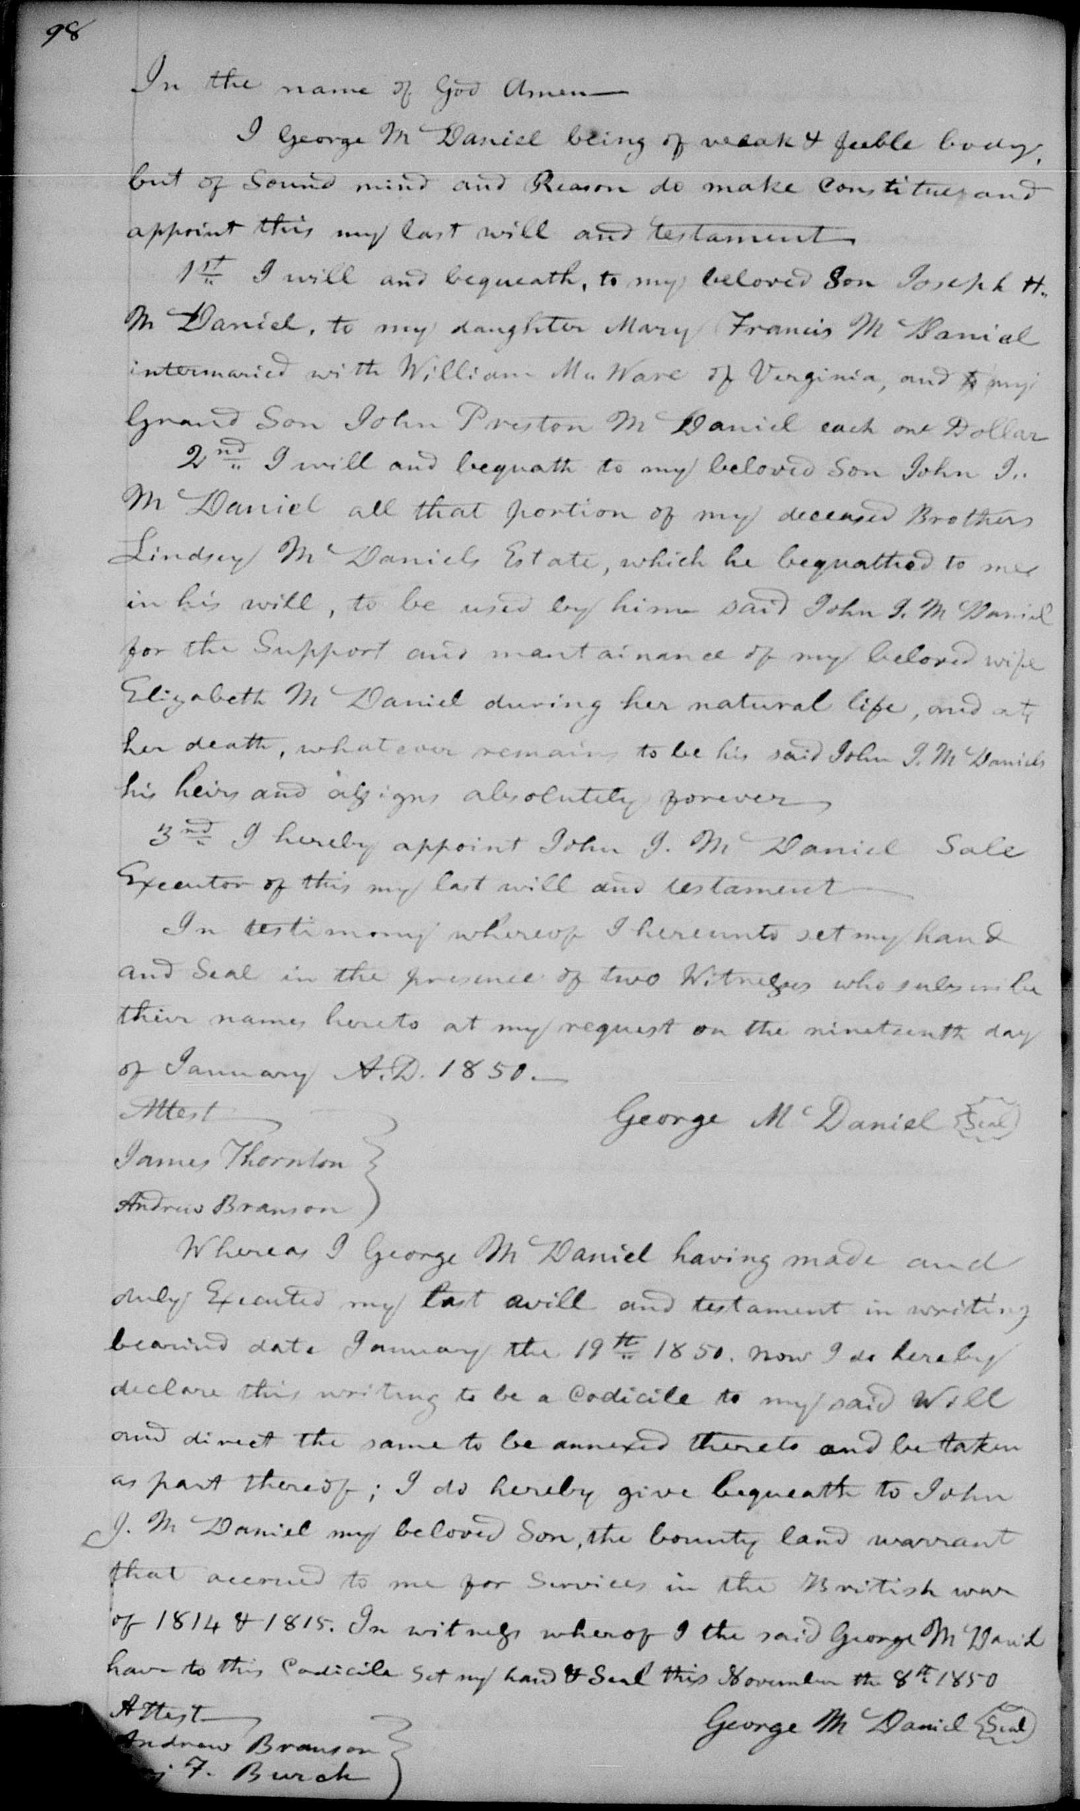 98
In the name of God Amen
I George Mc Daniel being of weak & feeble body,
but of Sound mind and Reason do make Constitue, and
appoint this my last will and testament
1st I will and bequeath, to my beloved Son Joseph H.
Mc Daniel, to my daughter Mary Francis Mc Daniel
intermaried with William Mc Ware of Verginia, and to my
Grand Son John Preston Mc Daniel each one Dollar
2nd I will and bequath to my beloved Son John J.
Mc Daniel all that portion of my deceased Brothers
Lindsey Mc Daniels Estate, which he bequathed to me
in his will, to be used by him said John J. Mc Daniel
for the Support and mantainance of my beloved wife
Elizabeth Mc Daniel during her natural life, and at
her death, whatever remains to be his said John J. Mc Daniels
his heirs and assigns absolutely forever
3nd I hereby appoint John J. Mc Daniel Sole
Executor of this my last will and testament
In testimony whereof I hereunto set my hand
and Seal in the presence of two Witnesses who subscribe
their names hereto at my request on the nineteenth day
of January A.D. 1850.
Attest
George Mc Daniel Seal
James Thornton
Andrew Branson
Whereas I George Mc Daniel having made and
duly Executed my last will and testament in writing
bearind date January the 19th 1850. now I do hereby
declare this writing to be a Codicile to my said Will
and direct the same to be annexed thereto and be taken
as part thereof; I do hereby give bequeath to John
J. Mc Daniel my beloved Son, the bounty land warrant
that accrued to me for Services in the British war
of 1814 & 1815. In witness wherof I the said George Mc Daniel
have to this Codicile Set my hand & Seal this November the 8th 1850
Attest
George Mc Daniel Seal
Andrew Branson
F. Burch